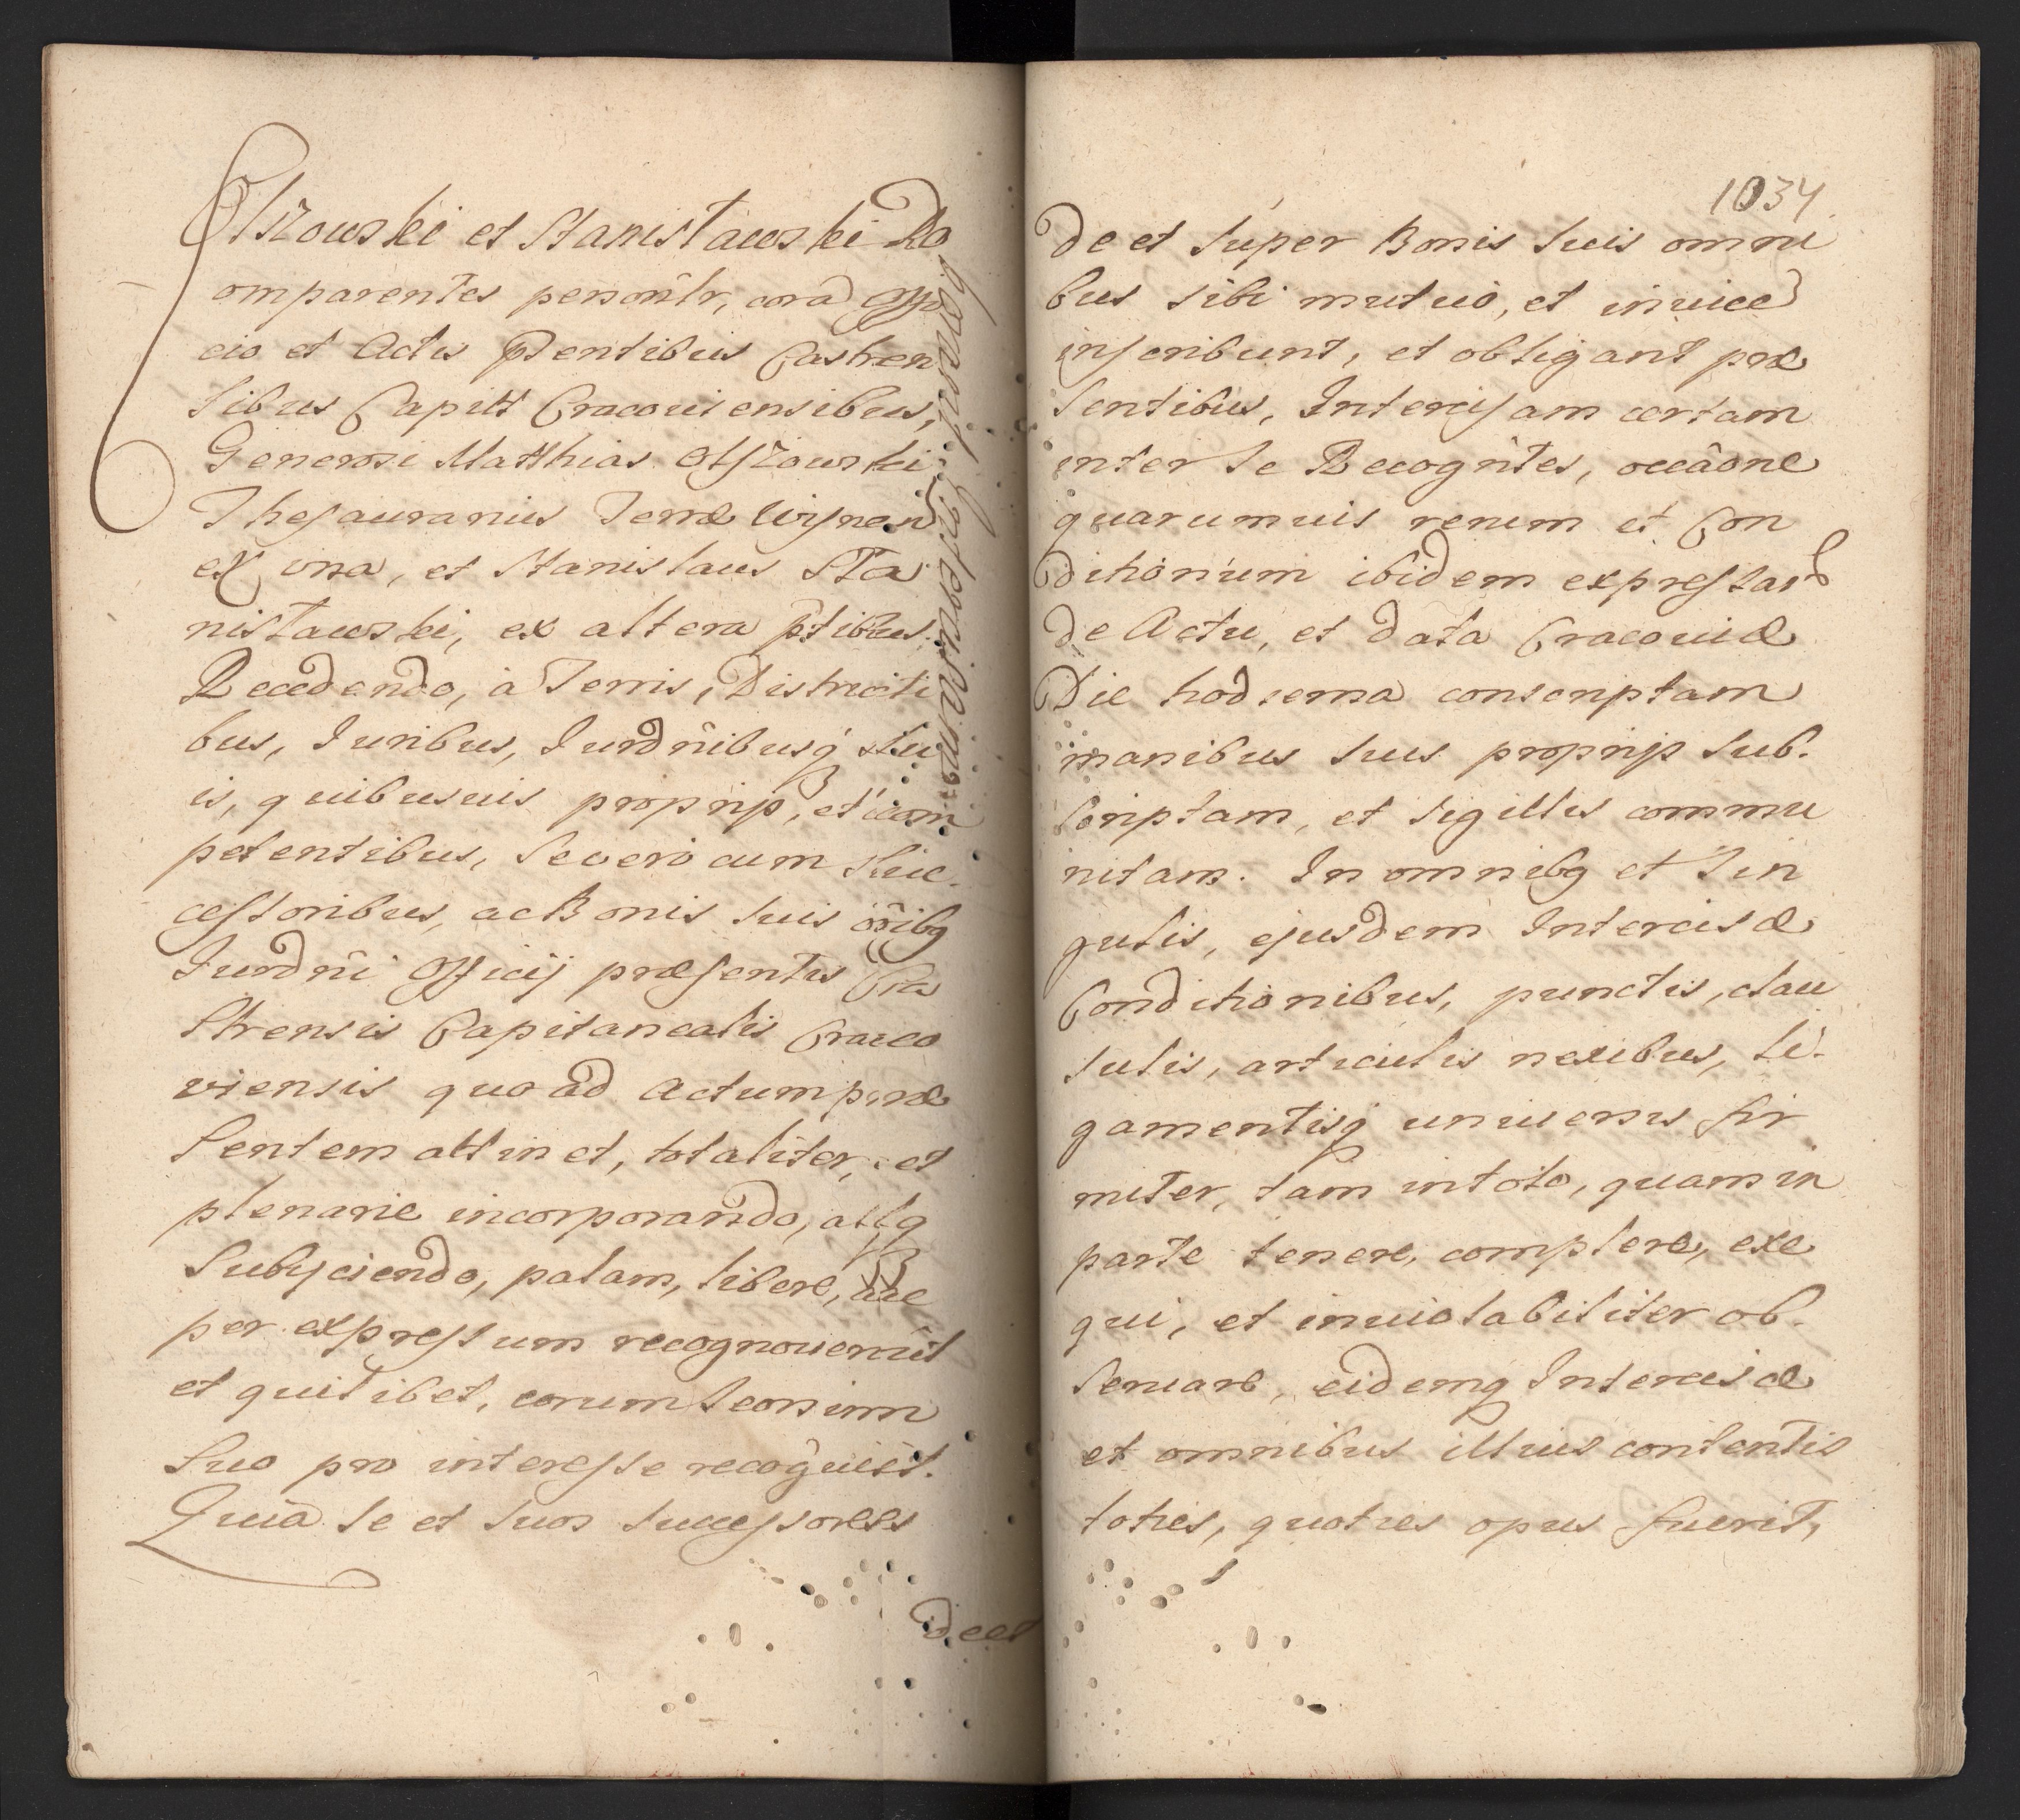 Olszowski et Stanisławski Ro
omparentes personlr, corā Offi
cio et Actis Pñtibus Castren
sibus Capitt Cracoviensibus,
Generosi Matthias Olszowski
Thesauranius Terræ Vissnen
ex una, et Stanislaus Sta
nisławski, ex altera ptibus.
Recedendo, à Terris, Districti
bus, Iuribus, Iurdnibusq su
is, quibusuis proprijs, et com
petentibus, seuero cum suc.
cessoribus, ac Bonis suis oîbq
Iurdni Officij præsentis Ca
strensis Capitanealis Craco
viensis quo ad Actum præ
sentem attinet, totaliter, et
plenarie incorporando, atq
Subijciendo, palam, libere, ac
per expressum recognouerūt
et quilibet, eorum seorsim
suo pro interesse recogūit.
Quia se et suos successores
de et
1034
de et super Bonis suis omni
bus sibi mutuò, et inuicē
inscribunt, et obligant præ
sentibus, Intercisam certam
inter se Recogntes, occāone
quarumuis rerum et Con
ditionum ibidem expressar
de Actu, et data Cracoviæ
Die hodierna conscriptam
manibus suis proprijs sub.
scriptam, et sigillis commu
nitam. In omnibq et sin
gulis, ejusdem Intercisæ
Conditionibus, punctis, clau
sulis, articulis nexibus, li.
gamentisq uniuersis fir
miter, tam in toto, quam in
parte tenere, complere, exe
qui, et inuiolabiliter ob.
seruare, eidemq Intercisæ
et omnibus illius contentis
toties, quoties opus fuerit,